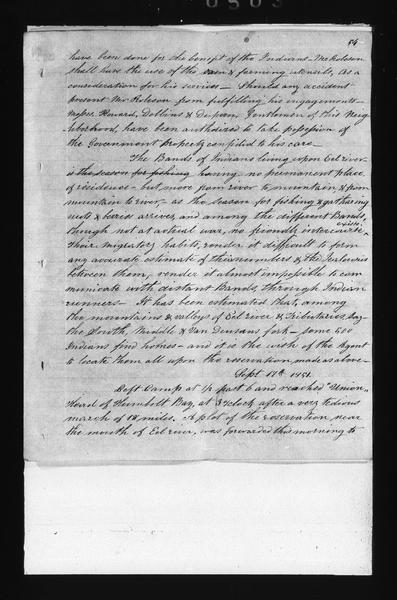 54
have been done for the benefit of the Indians - Mr Robeson
shall have the use of the oxen & farming utensils, as a
consideration for his services - Should any accident
prevent Mr Robeson from fulfilling his engagements -
Messrs. Howard, Dobbins & Duprey, Gentlemen of this Neigh
borhood, have been authorized to take possession of
the Government property confided to his care -
The Bands of Indians living upon Eel river
is the season for fishing having no permanent place
of residence - but move from river to mountain & from
mountain to river - as the season for fishing & gathering
nuts & berries arrives, and among the different Bands,
though not at actual war, no friendly intercourse exists.
Their migratory habits, render it difficult to form
any accurate estimate of their numbers & the Jealousies
between them, render it almost impossible to com
municate with distant Bands, through Indian
runners - It has been estimated that, among
the mountains & valleys of Eel river & Tributaries, say -
the South, Middle & Van Deusens fork - some 500
Indians find homes - and it is the wish of the Agent
to locate them all upon the reservation made as above -
Sept 17th 1851.
Left Camp at 1/2 past 6 and reached "Union"
Head of Humbolt Bay, at 3 o'clock after a very tedious
march of 18 miles. A plot of the reservation, near
the mouth of Eel river, was forwarded this morning to